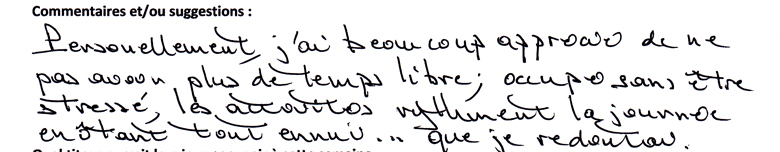 Commentaires et/ou suggestions :
Personellement, j'ai beaucoup apprécié de ne
pas avoir plus de temps libre; occupé sans être
stressé, les activités rythment la journée
en ôtant tout ennui... que je redoutais.